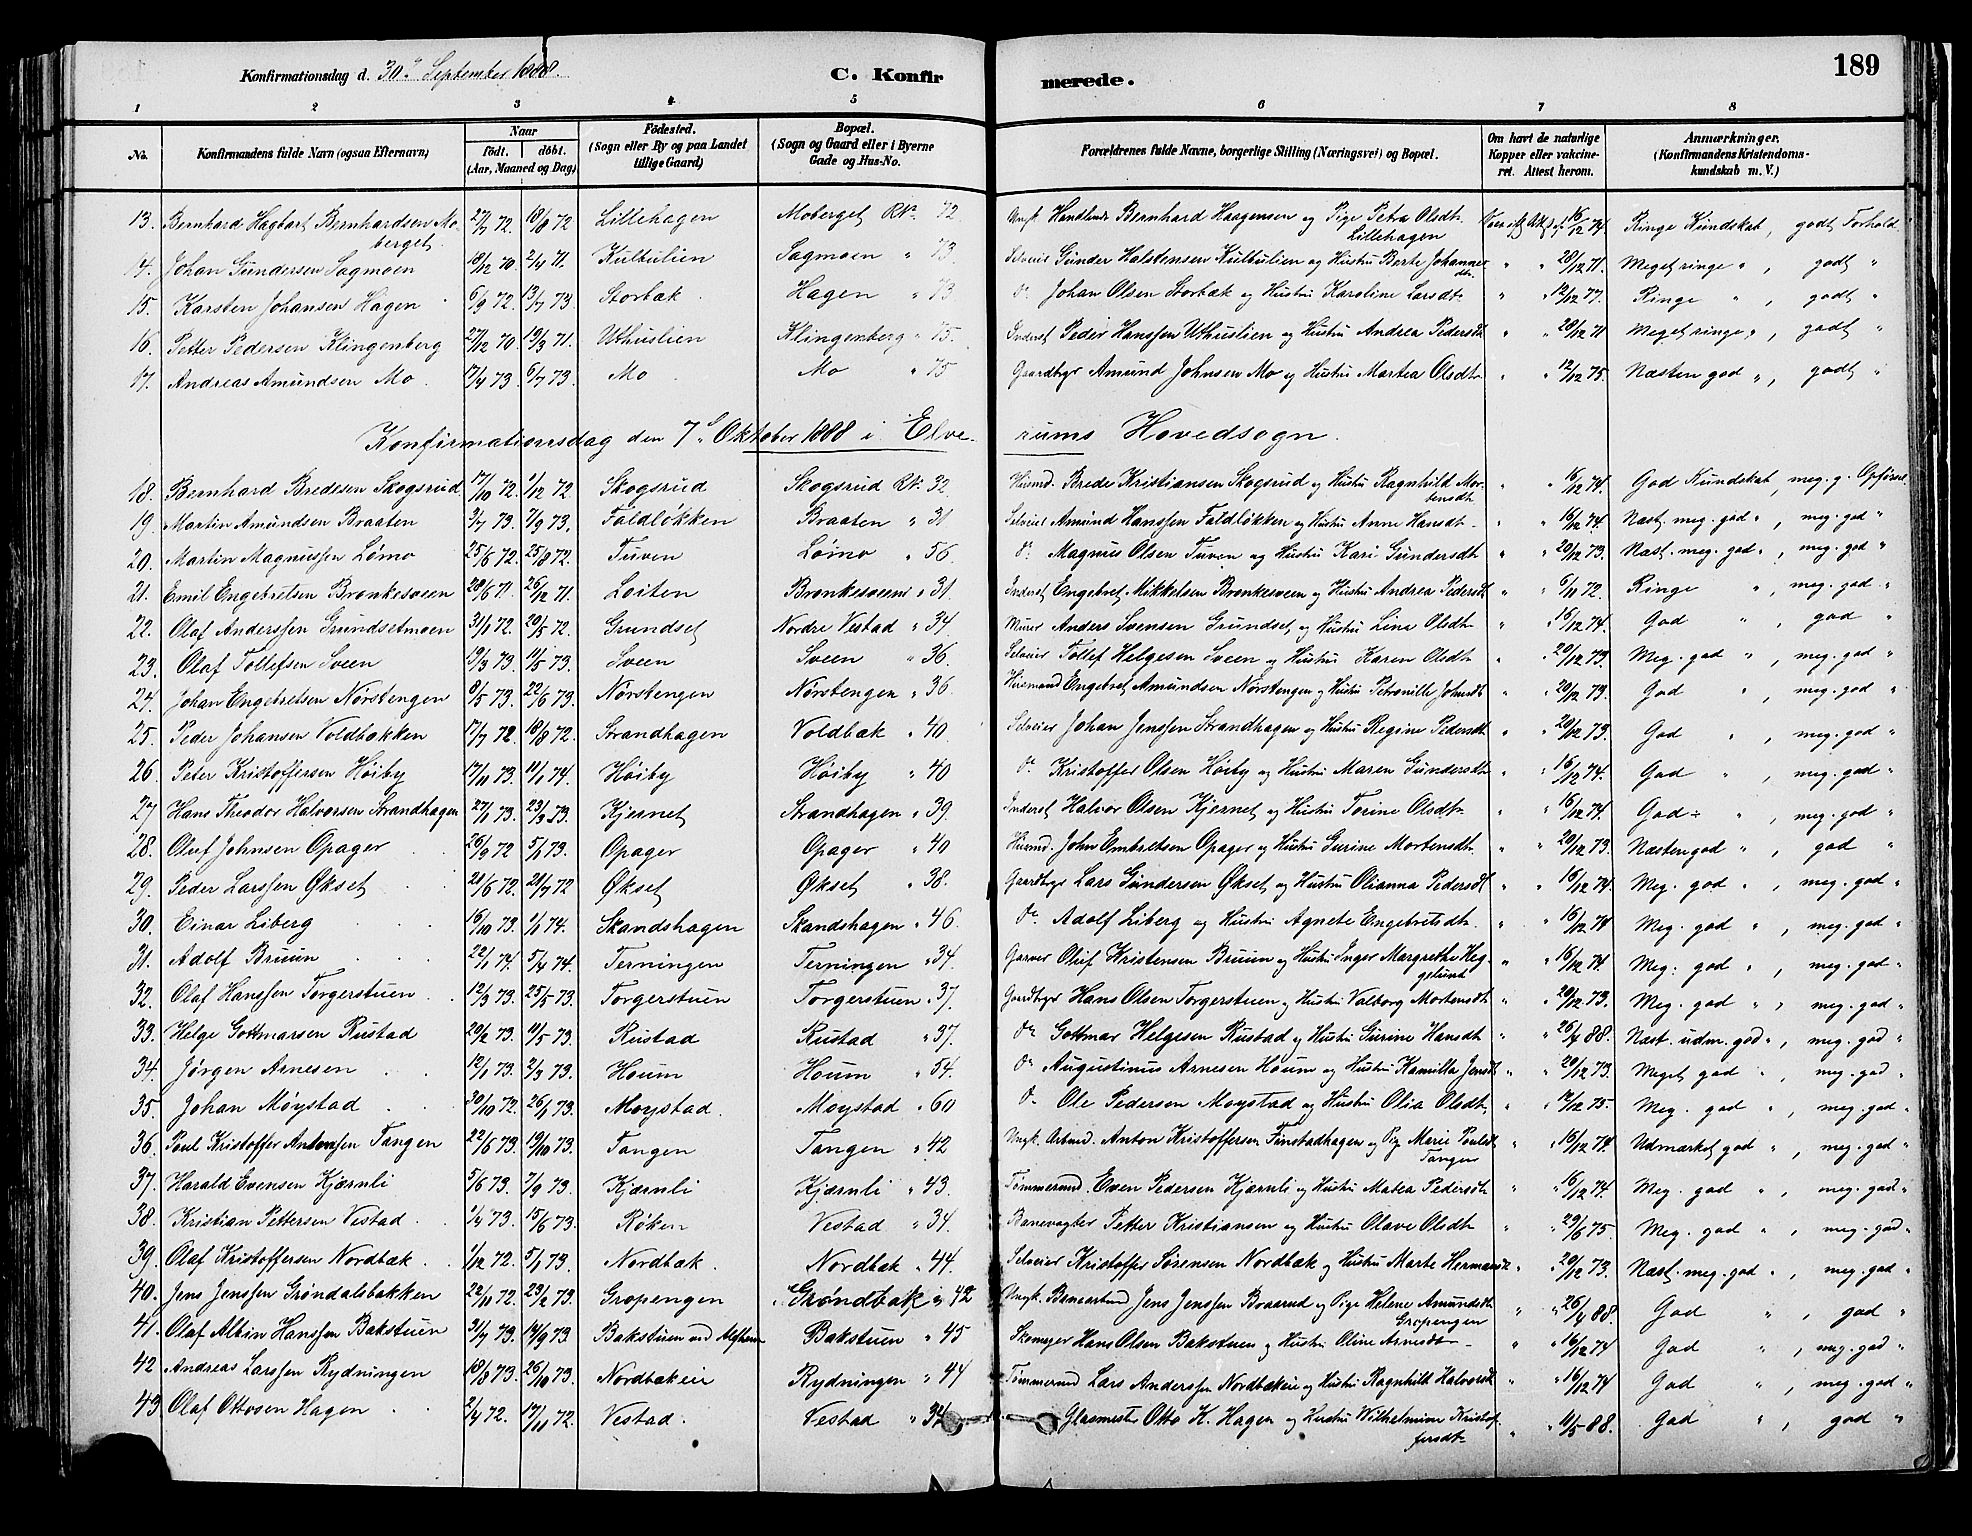 Konfirmationsdag d. 30te September 1888. C. Konfirmerede. 189
1 2 3 4 5 6 7 8
No. Konfirmandens fulde Navn (ogsaa Efternavn) Naar født. døbt. (Aar, Maaned og Dag) Fødested. (Sogn eller By og paa Landet tillige Gaard) Bopæl. (Sogn og Gaard eller i Byerne Gade og Hus-No. Forældrenes fulde Navne, borgerlige Stilling (Næringsvei) og Bopæl. Om havt de naturlige Kopper eller vakcineret. Attest herom. Anmærkninger. (Konfirmandens Kristendomskundskab m. V.)
13. Bernhard Hagbart Bernhardsen Moberget. 27/7 72. 18/8 72 Lillehagen Moberget RN. 72. Ungk. Handlende Bernhard Haagensen og Pige Petra Olsdt. Lillehagen 16/12 74. Ringe Kundskab, godt Forhold
14. Johan Gundersen Sagmoen 18/12 70. 2/4 71. Kulbulien Sagmoen " 73. Selveier Gunder Halstensen Kulbulien og Hustru Berte Johannesdtr. " " 28/12 71. Meget ringe ", godt "
15. Karsten Johansen Hagen 6/9 72. 13/7 73. Storbæk. Hagen " 73 do Johan Olsen Storbæk og Hustru Karoline Larsdt. " " 12/12 77. Ringe ", godt "
16. Petter Pedersen Klingenberg 27/12 70 19/3 71. Uthuslien Klingenberg " 75. Inderst Peder Hanssen Uthuslien og Hustru Andrea Pedersdt " " 28/12 71 Meget ringe ", godt "
17. Andreas Amundsen Mo. 17/4 73. 6/7 73. Mo Mo " 75 Gaardbrgr Amund Johnsen Mo og Hustru Martea Olsdt. " " 12/12 75. Næsten god ", godt "
Konfirmationsdag den 7de Oktober 1888 i Elverums Hovedsogn.
18. Bernhard Bredesen Skogsrud 17/10 72. 1/12 72 Skogsrud Skogsrud RN. 32. Husmd. Brede Kristiansen Skogsrud og Hustru Ragnhild Mortensdt " " 16/12 74. God Kundskab, meg. g. Opførsel
19. Martin Amundsen Braaten 3/7 73. 7/9 73. Faldløkken Braaten " 31 Selveier Amund Hanssen Faldløkken og Hustru Anne Hansdt. " " 16/12 74. Næst. meg. god ", meg. god "
20. Martin Magnussen Lømo 25/6 72. 25/8 72. Tuven Lømo " 56 do Magnus Olsen Tuven og Hustru Kari Gundersdt " " 20/12 73. Næst. meg. god ", meg. god "
21. Emil Engebretsen Bronkesveen 28/6 71. 26/12 71. Løiten Bronkesveen " 31. Inderst Engebret Mikkelsen Bronkesveen og Hustru Andrea Pedersdt " " 6/11 72. Ringe ", meg. god "
22. Olaf Anderssen Grundsetmoen 31/1 72. 20/5 72. Grundset Nordre Vestad " 34. Murer Anders Svensen Grundset og Hustru Line Olsdt. " " 16/12 74. God ", god "
23. Olaf Tollefsen Sveen 19/3 73. 11/5 73. Sveen Sveen " 36. Selveier Tollef Helgesen Sveen og Hustru Karen Olsdt. " " 20/12 73. Meg. god ", meg. god "
24. Johan Engebretsen Nørstengen 8/5 73. 22/6 73. Nørstengen Nørstengen " 36 Husmand Engebret Amundsen Nørstengen og Hustru Petronille Johnsdt " " 20/12 73 God ", meg. god "
25. Peder Johansen Voldbakken 17/7 72. 18/8 72. Strandhagen Voldbæk " 40 Selveier Johan Jenssen Strandhagen og Hustru Regine Pedersdt " " 20/12 73. God ", meg. god "
26. Peter Kristoffersen Høiby 17/11 73. 11/1 74. Høiby Høiby " 40 do Kristoffer Olsen Høiby og Hustru Maren Gundersdt " " 16/12 74. God ", meg. god "
27 Hans Theodor Halvorsen Strandhagen 27/1 73. 23/3 73. Kjernet Strandhagen " 39. Inderst Halvor Olsen Kjernet og Hustru Torine Olsdt. " " 16/12 74. God ", meg. god "
28. Oluf Johnsen Opager 26/9 72 5/1 73. Opager Opager " 40 Husmd. John Embretsen Opager og Hustru Gurine Mortensdt. " " 20/12 73. Næsten god ", god "
29. Peder Larssen Økset 21/6 72. 21/7 72 Økset Økset " 38. Gaardbrgr Lars Gundersen Økset og Hustru Olianna Pedersdt " " 16/12 74. Meg. god ", meg. god "
30. Einar Liberg 16/10 73. 1/1 74. Skandshagen Skandshagen " 46. do Adolf Liberg og Hustru Agnete Engebretsdt. " " 16/12 74 Meg. god ", meg. god "
31. Adolf Bruun 22/1 74. 5/4 74. Terningen Terningen " 34. Garver Oluf Kristensen Bruun og Hustru Inger Margrethe Heggelund " " 16/12 74. Meg. god ", meg. god "
32. Olaf Hanssen Torgerstuen 12/3 73. 25/5 73. Torgerstuen Torgerstuen " 37. Gaardbrgr Hans Olsen Torgerstuen og Hustru Valborg Mortensdt " " 20/12 73. Meg. god ", meg. god "
33. Helge Gottmarsen Rustad 20/2 73. 11/5 73. Rustad Rustad " 37. do Gottmar Helgesen Rustad og Hustru Gurine Hansdt " " 26/4 88. Næst. udm. god ", meg. god "
34. Jørgen Arnesen 12/1 73. 2/3 73. Houm Houm " 54. do Augustinus Arnesen Houm og Hustru Kamilla Jensdt " " 20/12 73. Meget god ", meg. god "
35. Johan Møystad 30/10 72. 26/1 73. Moystad. Moystad " 60 do Ole Pedersen Moystad og Hustru Olia Olsdt. " " 12/12 75. Meg. god ", meg. god "
36. Poul Kristoffer Antonsen Tangen 22/6 73. 19/10 73. Tangen Tangen " 42 Ungk. Arbmd. Anton Kristoffersen Finstadhagen og Pige Marie Poulsdt Tangen " " 16/12 74. Udmærket god ", meg. god "
37. Harald Evensen Kjærnli 5/6 73. 7/9 73. Kjærnli Kjærnli " 43. Tømmermd. Even Pedersen Kjærnli og Hustru Matea Pedersdt " " 16/12 74. Meg. god ", meg. god "
38. Kristian Pettersen Vestad 1/4 73. 15/6 73. Røken Vestad " 34. Banevogter Petter Kristiansen og Hustru Olave Olsdt " " 29/6 75. Meg. god ", meg. god "
39. Olaf Kristoffersen Nordbæk 1/12 72. 5/1 73. Nordbæk. Nordbæk " 44. Selveier Kristoffer Sørensen Nordbæk og Hustru Marte Hermansdt " " 20/12 73. Næst. meg. god ", meg. god "
40. Jens Jenssen Grøndalsbakken 22/11 72. 23/2 73. Gropengen Grøndbæk " 42 Ungk. Banearbmd Jens Jenssen Braarud og Pige Helene Amundsdt Gropengen " " 26/4 88. God ", god "
41. Olaf Albin Hanssen Bakstuen 31/7 73. 14/9 73. Bakstuen ved Alfheim Bakstuen " 45 Skomager Hans Olsen Bakstuen og Hustru Oline Arnesdt. " " 16/12 74 God ", meg. god "
42 Andreas Larssen Rydningen 18/8 73. 26/10 73. Nordbækeie Rydningen " 44 Tømmermd Lars Anderssen Nordbækeie og Hustru Ragnhild Halvorsdt " " 16/12 74 God ", meg. god "
43 Olaf Ottosen Hagen 2/4 72. 17/11 72. Vestad. Vestad " 34 Glasmest. Otto K. Hagen og Hustru Wilhelmine Kristoffersdt. " " 11/5 88. God ", god "